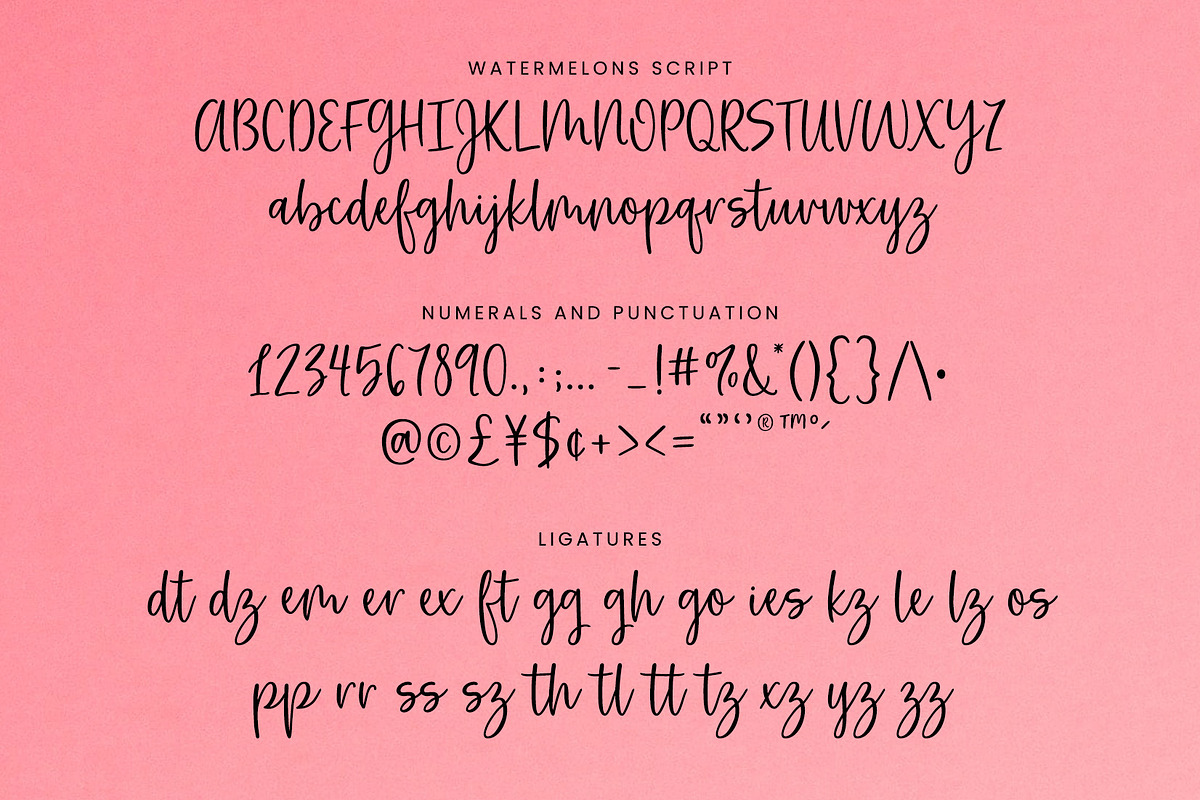 WATERMELONS SCRIPT
ABCDEFGHIJKLMNOPQRSTUVWXYZ
abcdefghijklmnopqrstuvwxyz
NUMERALS AND PUNCTUATION
1234567890.,:;...-_!#%&*(){}/\•
@©£¥$¢+><=“”‘’®™º´
LIGATURES
dt dz em er ex ft gg gh go ies kz le lz os
pp rr ss sz th tl tt tz xz yz zz